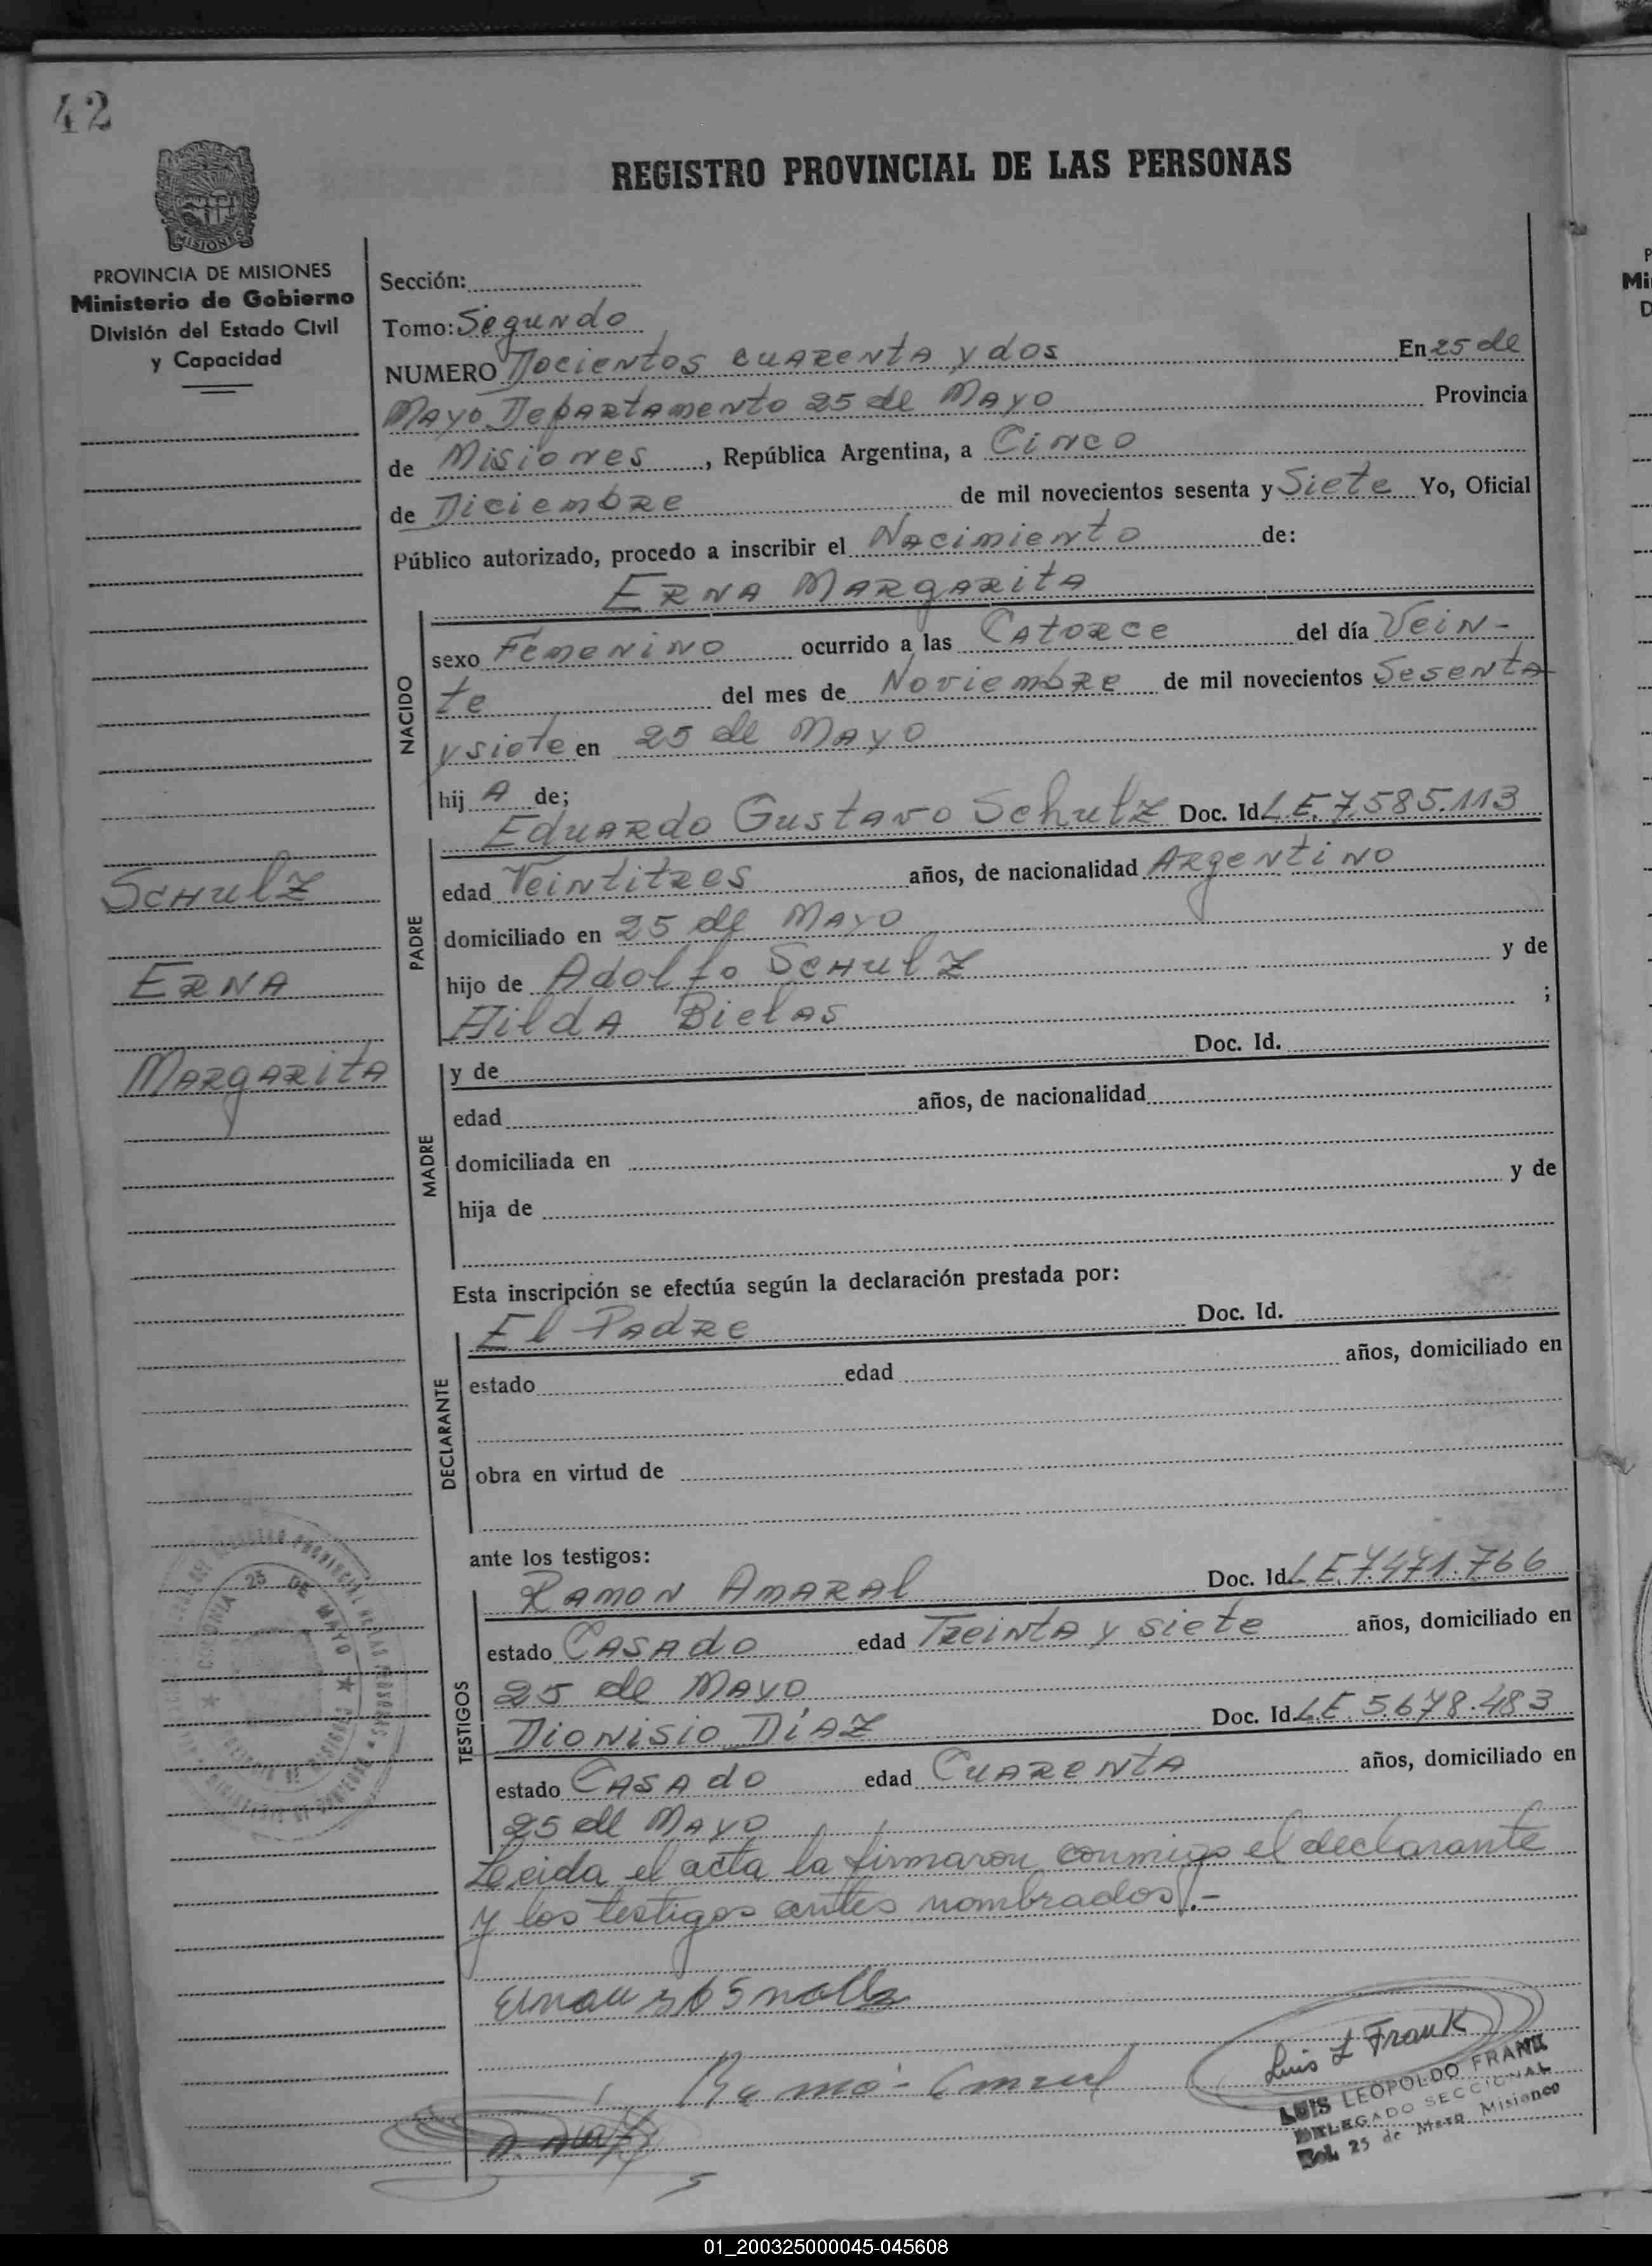 42
MISIONES
REGISTRO PROVINCIAL DE LAS PERSONAS
PROVINCIA DE MISIONES
Ministerio de Gobierno
División del Estado Civil
y Capacidad
Sección:
Tomo: Segundo
NUMERO Docientos cuarenta y dos En 25 de
Mayo Departamento 25 de Mayo Provincia
de Misiones, República Argentina, a Cinco
de Diciembre de mil novecientos sesenta y Siete Yo, Oficial
Público autorizado, procedo a inscribir el Nacimiento de:
ERNA MARGARITA
NACIDO
sexo Femenino ocurrido a las Catorce del día Vein-
te del mes de Noviembre de mil novecientos Sesenta
y siete en 25 de Mayo
hij A de;
PADRE
Eduardo Gustavo Schulz Doc. Id. L.E. 7.585.113
edad Veintitres años, de nacionalidad Argentino
domiciliado en 25 de Mayo
hijo de Adolfo Schulz y de
Hilda Bielas ;
SCHULZ
ERNA
MARGARITA
MADRE
y de Doc. Id.
edad años, de nacionalidad
domiciliada en
hija de y de
Esta inscripción se efectúa según la declaración prestada por:
DECLARANTE
El Padre Doc. Id.
estado edad años, domiciliado en
obra en virtud de
ante los testigos:
TESTIGOS
Ramon Amaral Doc. Id. L.E. 7471.766
estado Casado edad Treinta y siete años, domiciliado en
25 de Mayo
Dionisio Díaz Doc. Id. L.E. 5.678.483
estado Casado edad Cuarenta años, domiciliado en
25 de Mayo
COLONIA 25 DE MAYO
Leida el acta la firmaron conmigo el declarante
y los testigos antes nombrados.-
Luis L Frank
LUIS LEOPOLDO FRANK
DELEGADO SECCIONAL
Col. 25 de Mayo Misiones
P
Mi
D
01_200325000045-045608